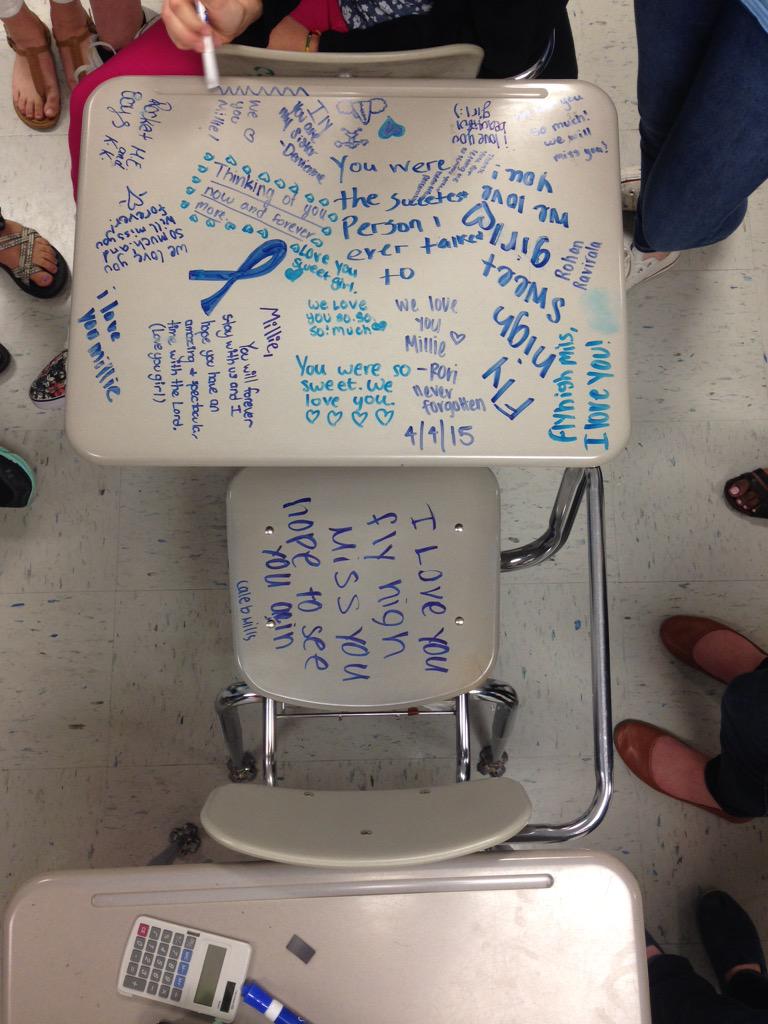 We ♡
you
Millie!
ILY
You are
my sister
-Darienne
i love you
beautiful
girl:)
miss you
so much!
we will
miss you!
Thinking of you
now and forever
more.
You were
the sweetest
Person I
ever talked
to
we love
you!
Fly
high
sweet
girl
Rohan
Ravirala
we love
you
so much and
will miss you
forever.
i love
you millie
♡ Love you
sweet girl.
we love
you so.so.
so! much
we love
you
Millie
-Rori
never
forgotten
4/4/15
You were so
sweet. we
love you.
♡ ♡ ♡ ♡
Millie,
You will forever
stay with us and I
hope you have an
amazing + spectacular
time with the Lord.
(Love you girl)
fly high mils,
I love you!
I Love you
fly high
Miss you
hope to see
you agin
caleb wills